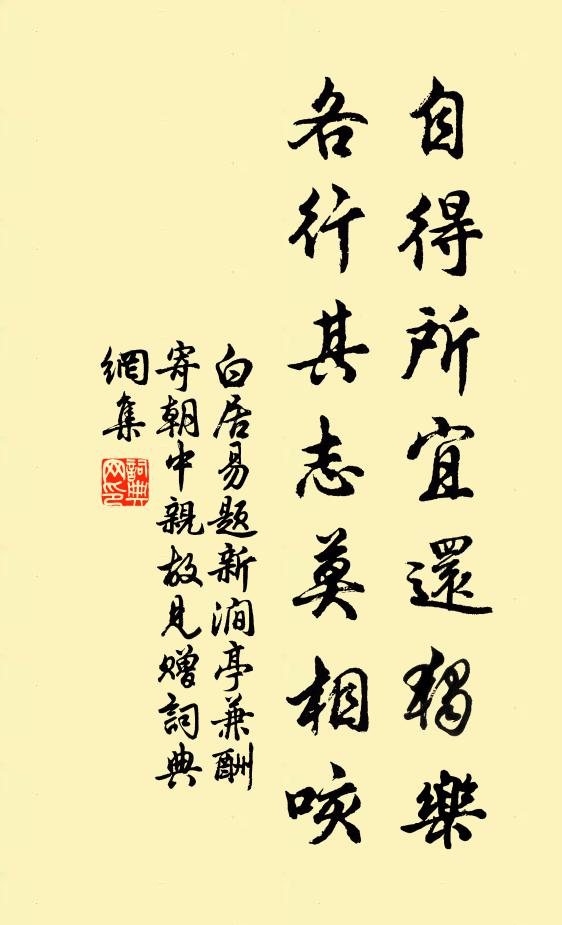 自得所宜還獨樂
各行其志莫相咲
白居易題新澗亭兼酬
寄朝中親故見贈詞典
網集
詞典網印